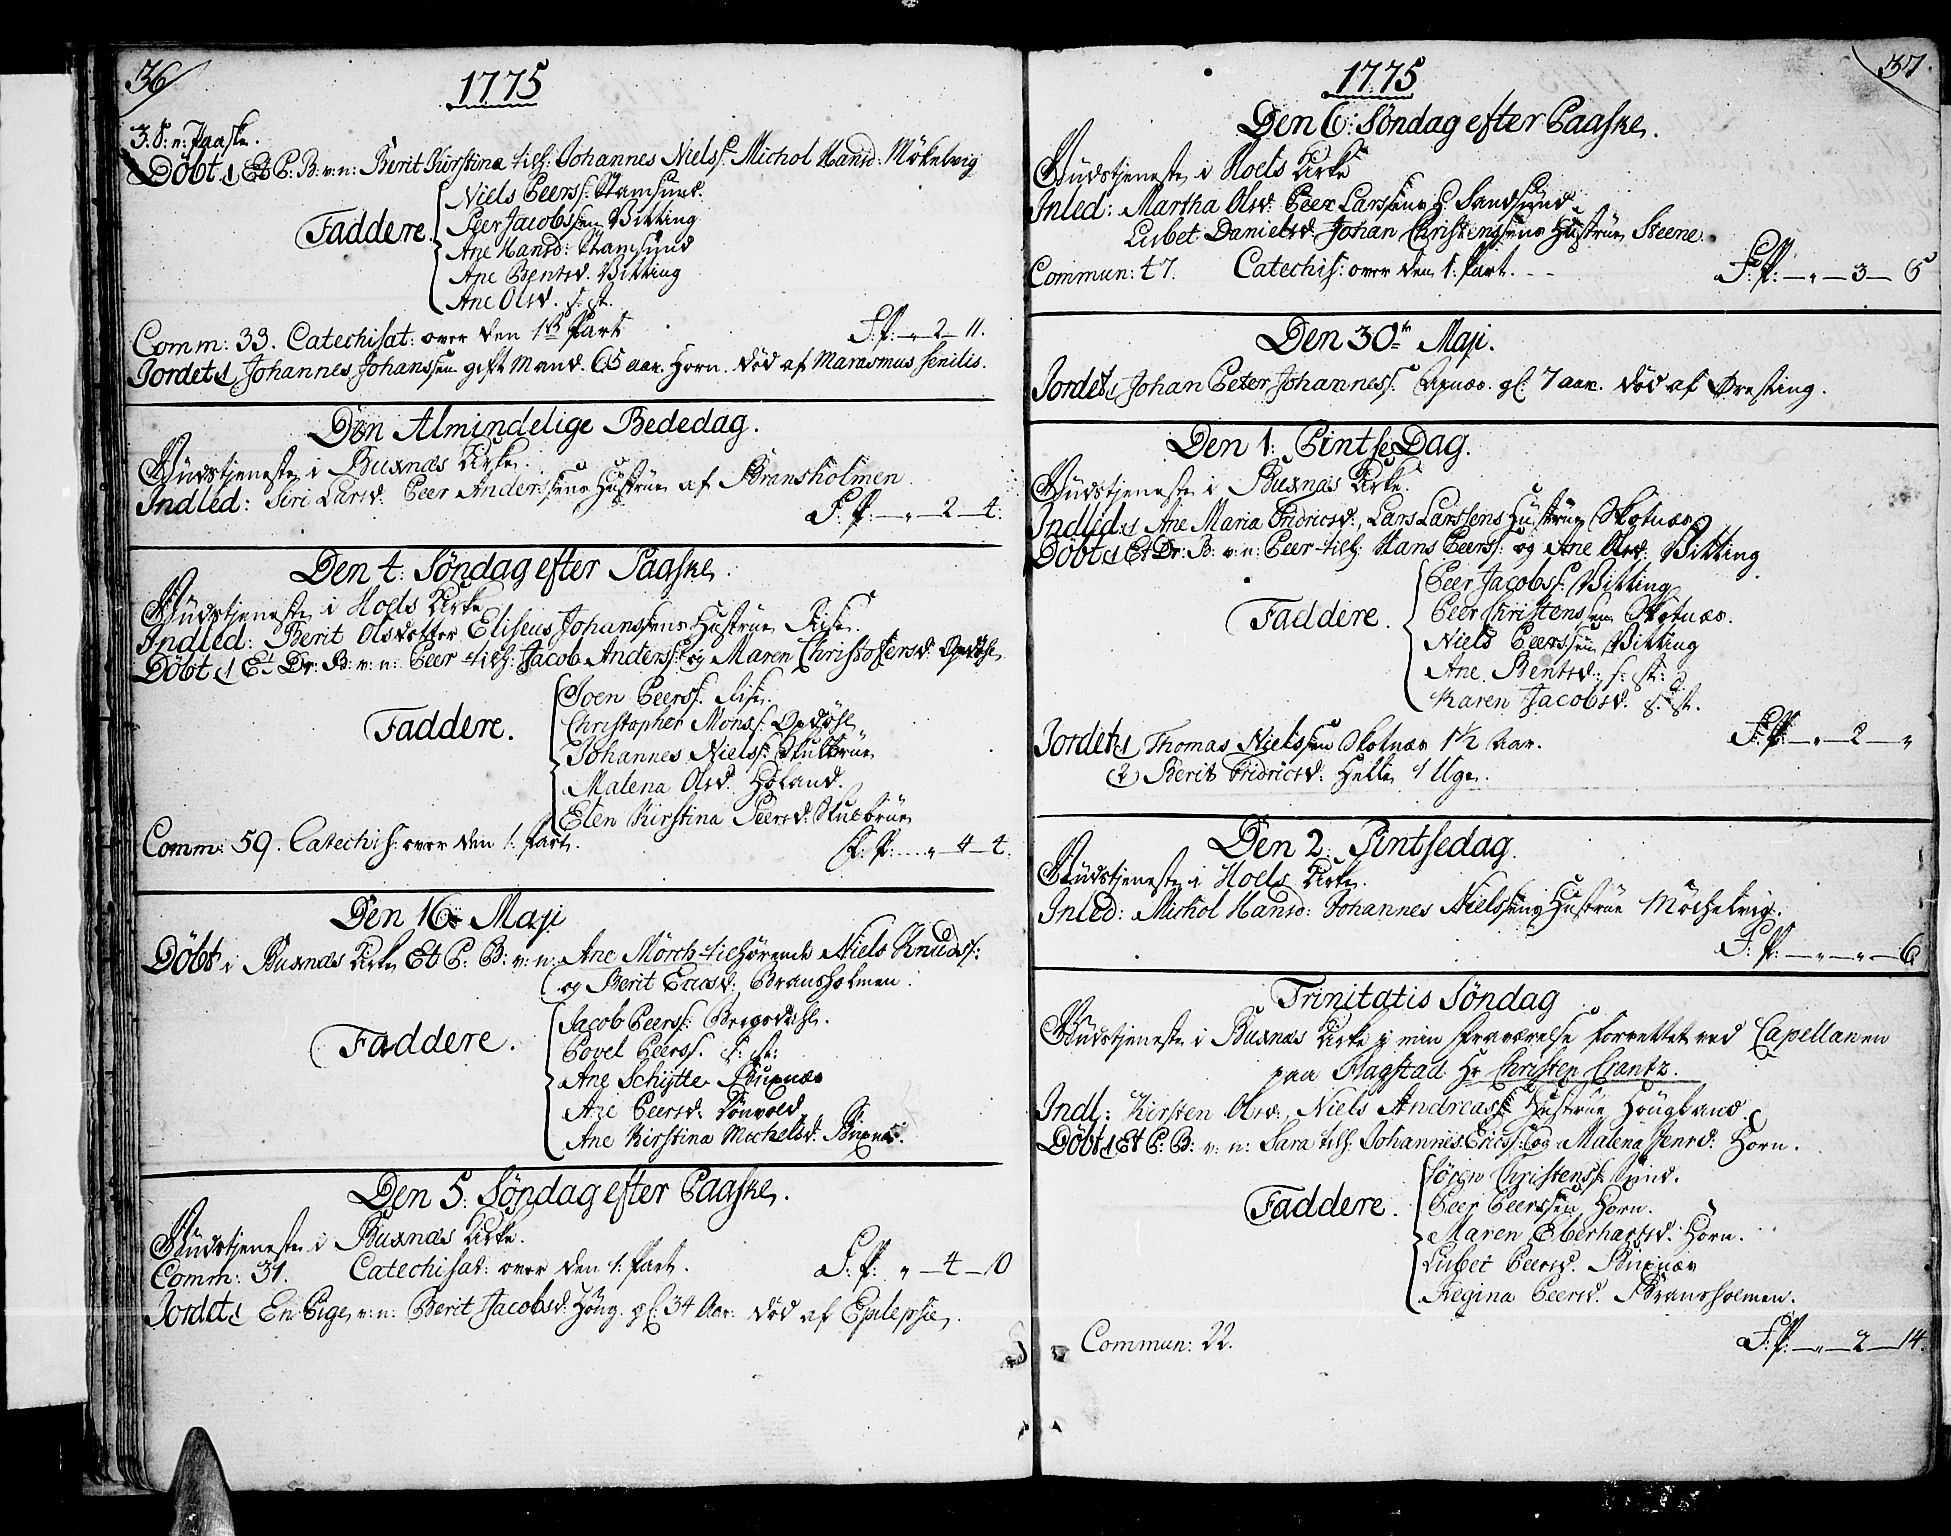 36
1775
3. S. e: Paaske.
Döbt 1 Et P: B: v: n: Berit Kirstina tilh: Johannes Nielss: Michol Hansd: Mökelvig
Niels Peerss: Stamsund.
Faddere. Peer Jacobssen Vitting
Ane Hansd: Stamsund
Ane Bentsd. Vitting
Ane Olsd. s: st.
Comm: 33. Catechisat: over den 1ste Part F: P: — „ 2 — 11.
Jordet 1 Johannes Johanssen gift Mand. 65 aar. Horn. död af Marasmus senilis.
Den Almindelige Bededag.
Gudstjeneste i Buxnæs Kirke.
Indled: Siri Larsd. Peer Anderssens Hustrue af Bransholmen
F: P: — „ — 2 — 4.
Den 4: Søndag efter Paaske.
Gudstjeneste i Hoels Kirke
Indled: Berit Olsdatter Eliseus Johanssens Hustrue Rise.
Döbt 1 Et Dr: B: v: n: Peer tilh: Jacob Anderss: og Maren Christophersd: Opdöhl
Joen Peerss: Rise.
Faddere. Christopher Monss: Opdöhl
Johannes Nielss: Skulbrue
Malena Olsd. Holand.
Elen Kirstina Peersd: Skulbrue
Comm: 59. Catechis: over den 1. Part. F: P: — „ — 4 — 4.
Den 16de Maji
Döbt i Buxnæs Kirke Et P: B: v: n: Ane Mörch tilhörende Niels Knudss:
og Berit Ericsd: Bransholmen.
Jacob Peerss: Bergsdahl.
Faddere. Povel Peerss. s: st:
Ane Schytte Buxnæs
Ane Peersd. Sönvold
Ane Kirstina Michelsd. Buxnæs.
Den 5. Søndag efter Paaske.
Gudstjeneste i Buxnæs Kirke.
Comm: 31. Catechisat: over den 1. Part. F: P: „ — 4 — 10
Jordet 1 En Pige v: n: Berit Jacobsd. Höug. gl: 34 Aar. död af Epilepsie.
37
1775
Den 6: Søndag efter Paaske.
Gudstjeneste i Hoels Kirke
Inled: Martha Olsd. Peer Larssens H. Sandsund.
Lisbet Danielsd. Johan Christenssens Hustrue Steene.
Commun: 47. Catechis: over den 1. Part. F: P: — „ — 3 — 6
Den 30te Maji.
Jordet 1 Johan Peter Johanness: Buxnæs. gl: 7 aar. död af Bresting.
Den 1. PintseDag.
Gudstjeneste i Buxnæs Kirke.
Indled 1 Ane Maria Fridricsd., Lars Larssens Hustrue Skotnæs
Döbt 1 Et Dr: B: v: n: Peer tilh: Hans Peerss: og Ane Olsd: Vitting
Peer Jacobss: Vitting
Faddere. Peer Christenssen Skotnæs.
Niels Peerssen Vitting
Ane Bentsd: s: st:
Karen Jacobsd. s: st.
Jordet 1 Thomas Nielssen Skotnæs 1½ Aar. F: P: — „ — 2 — „
(2) Berit Fridricsd: Helle 1 Uge.
Den 2. Pintsedag.
Gudstjeneste i Hoels Kirke.
Inled: Michol Hansd: Johannes Nielssens Hustrue Möchelvig.
F: P: — „ — „ — 6
Trinitatis Søndag
Gudstjeneste i Buxnæs Kirke i min fraværelse forrettet ved Capellanen
paa Flagstad Hr Christen Crantz.
Indl: Kirsten Olsd., Niels Andreass: Hustrue Höugland.
Döbt 1 Et P: B: v: n: Sara tilh: Johannes Ericss: og Malena Jensd: Horn.
Sören Christenss: Sund.
Faddere. Peer Peerssen Horn.
Maren Eberhartsd: Horn.
Lisbet Peersd. Buxnæs
Regina Peersd. Bransholmen.
Commun: 22. F: P: — „ — 2 — 14.